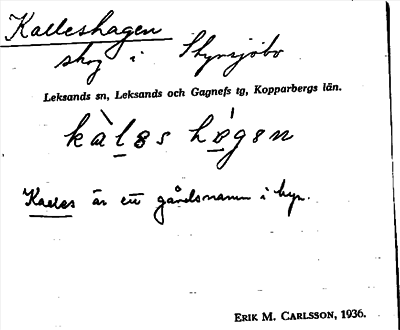 Kalleshagen
skog i Styrsjöbo
Leksands sn, Leksands och Gagnefs tg, Kopparbergs län.
kàləs hágən
Kalles är ett gårdsnamn i byn.
ERIK M. CARLSSON, 1936.